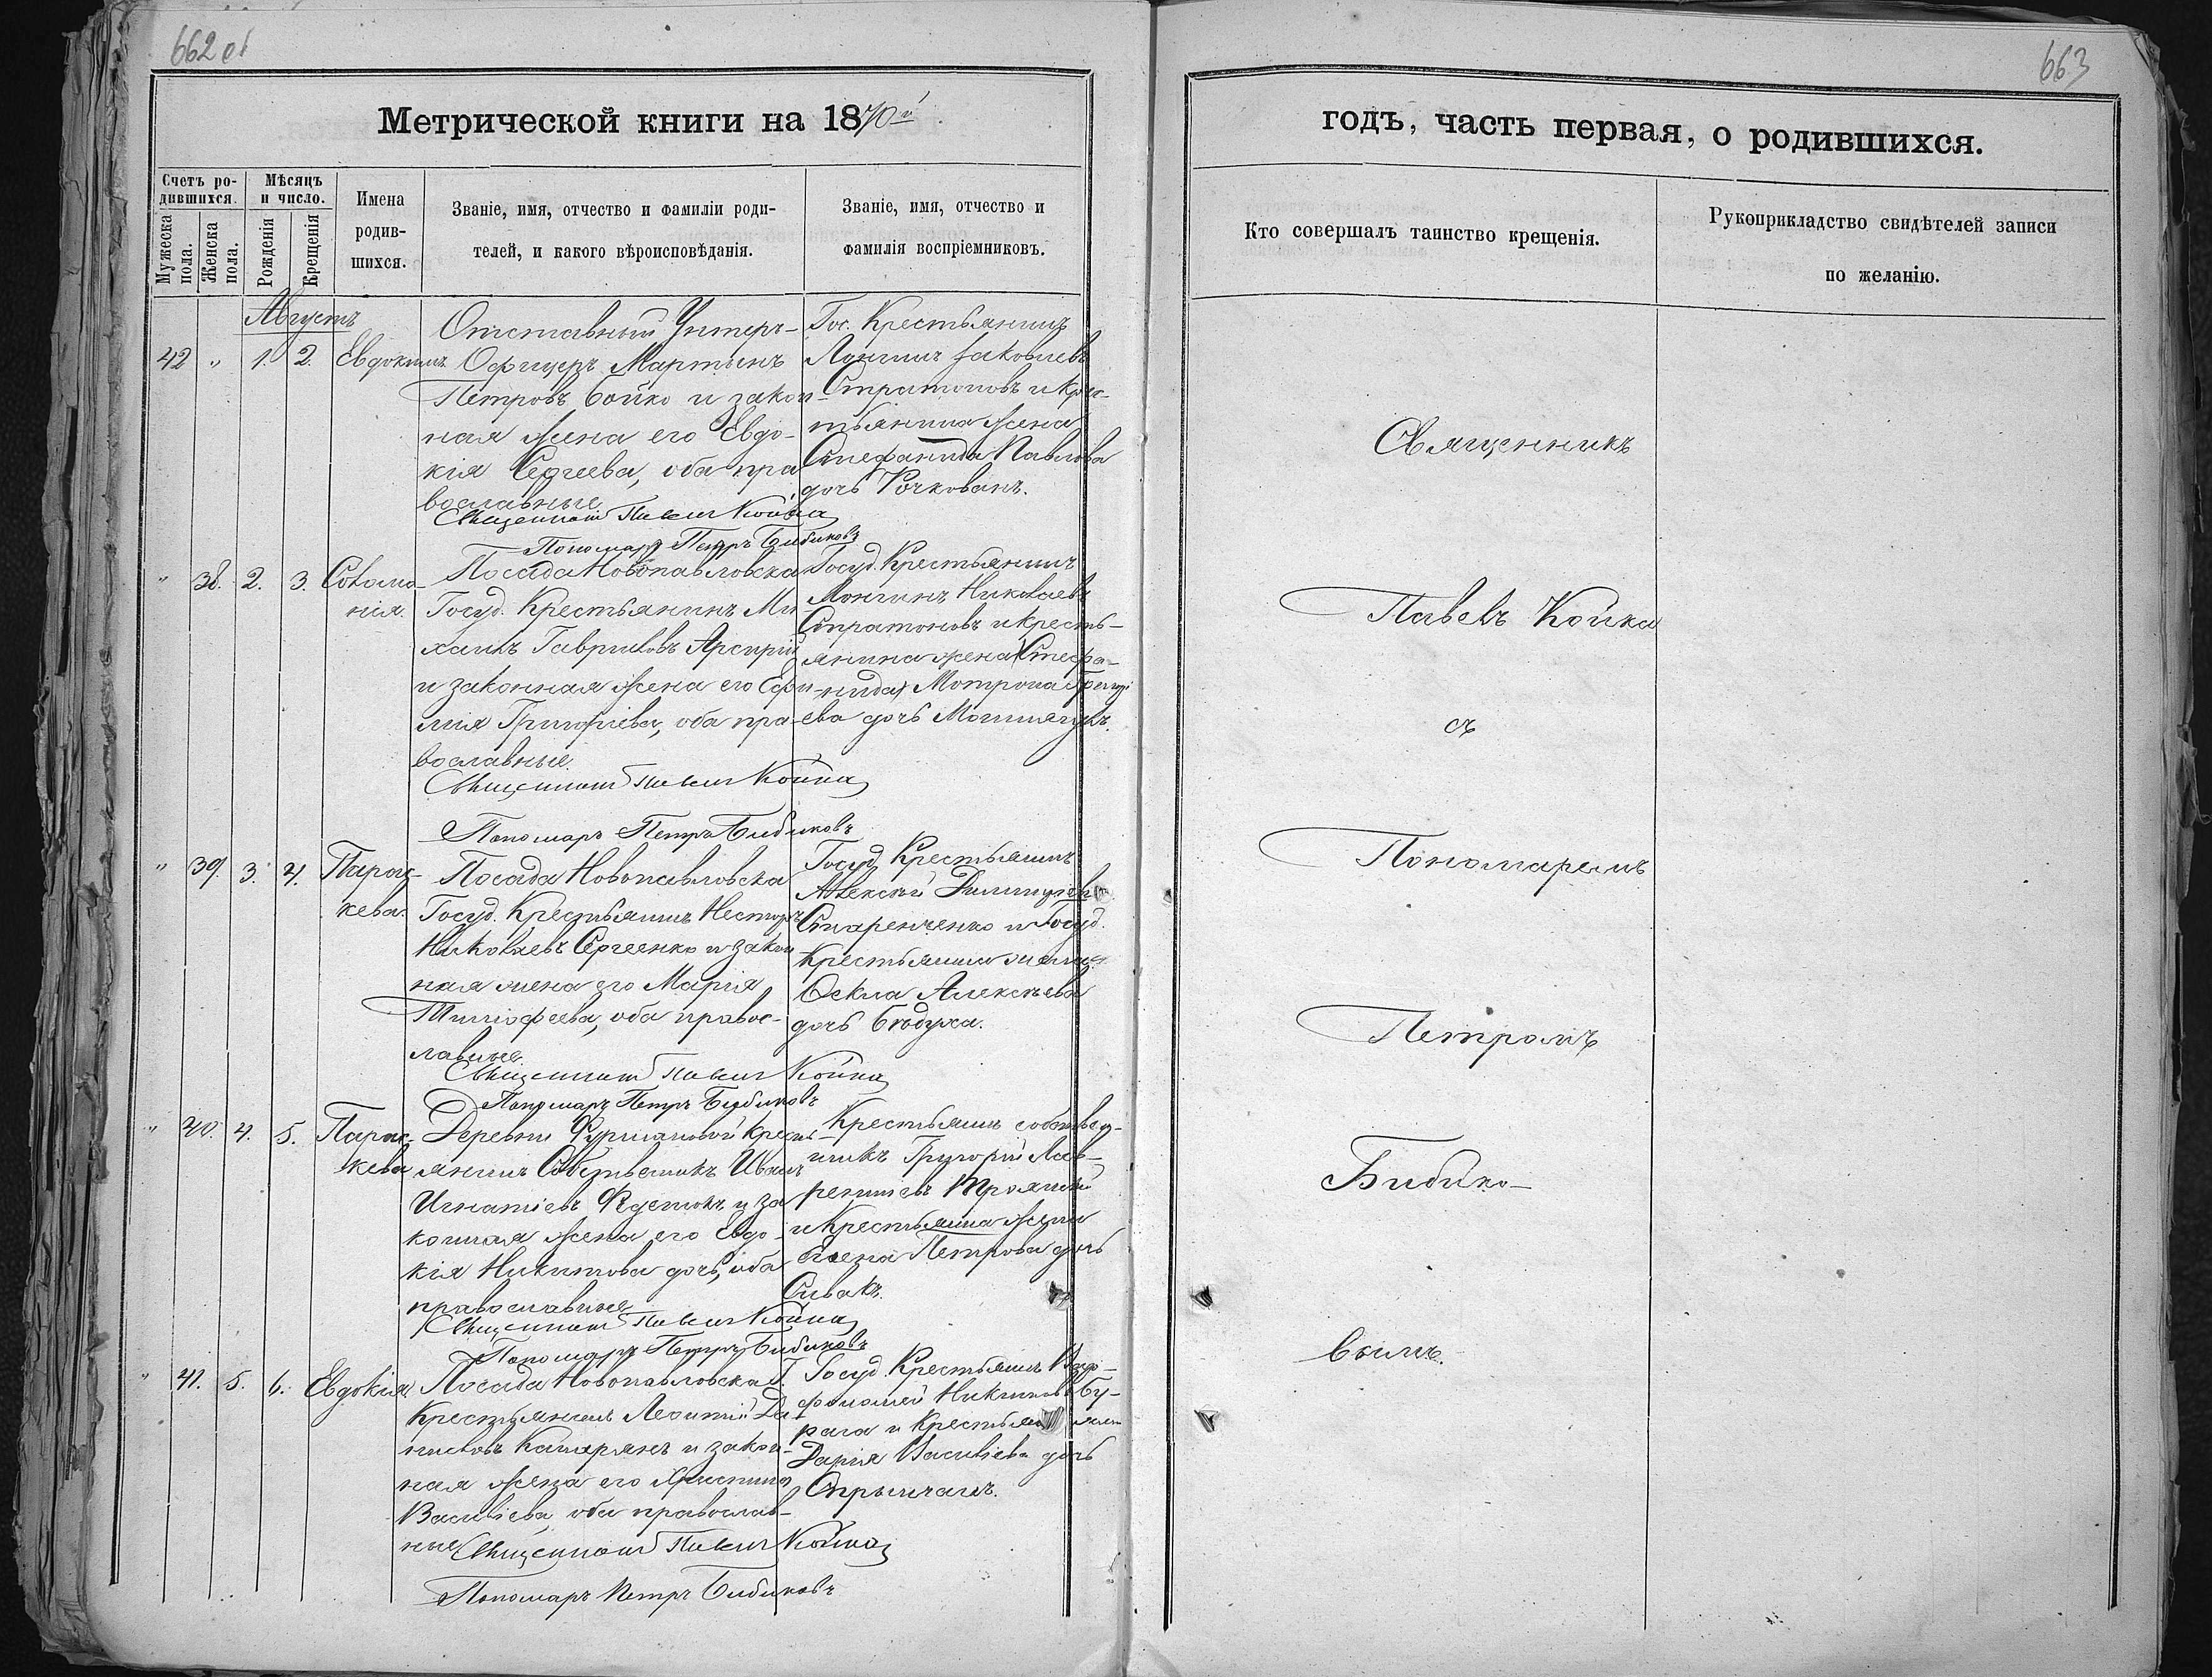 662 об
663
Метрической книги на 1870й
годъ, часть первая, о родившихся.
Счетъ ро-
дившихся.
Мужеска
пола.
Женска
пола.
Мѣсяцъ
и число.
Рожденія
Крещенія
Имена
родив-
шихся.
Званіе, имя, отчество и фамиліи роди-
телей, и какого вѣроисповѣданія.
Званіе, имя, отчество и
фамилія воспріемниковъ.
Кто совершалъ таинство крещенія.
Рукоприкладство свидѣтелей записи
по желанію.
Августъ
42 " 1. 2. Евдокимъ
Отставный Унтеръ-
Офицеръ Мартынъ
Петровъ Бойко и закон-
ная жена его Евдо-
кія Сергеева, оба пра
вославные
Священникъ Павелъ Койка
Пономарь Петръ Бибиковъ
Гос. Крестьянинъ
Лонгинъ Іаковлевъ
Стратоновъ и крес-
тьянина жена
Стефанида Павлова
дочь Рочкованъ.
" 38. 2. 3. Соломо-
нія.
Посада Новопавловска
Госуд. Крестьянинъ Ми
хаилъ Гавриловъ Арсирій
и законная жена его Ефи-
мія Григоріева, оба пра-
вославные
Священникъ Павелъ Койка
Пономарь Петръ Бибиковъ
Госуд. Крестьянинъ
Лонгинъ Николаевъ
Стратоновъ и кресть-
янина жена (Стефа-
нида) Мотрона Григорі
ева дочь
" 39. 3. 4. Парас-
кева.
Посада Новопавловска
Госуд. Крестьянинъ Несторъ
Николаевъ Сергеенко и закон
ная жена его Марія
Тимофеева, оба правос-
лавные
Священникъ Павелъ Койка
Пономарь Петръ Бибиковъ
Госуд. Крестьянинъ
Алексій
Старенченко и Госуд.
Крестьянина жена
Фекла Алексѣева
дочь Бѣдуха.
" 40. 4. 5. Парас-
кева
Деревни Фурмановой кресть-
янинъ Собственникъ Иванъ
Игнатіевъ и за
конная жена его Евдо-
кія Никитова дочь, оба
православные
Священникъ Павелъ Койка
Пономарь Петръ Бибиковъ
Крестьянинъ собствен-
никъ Григорій Лав-
рентіевъ Троянскій
и Крестьянина жена
Елена Петрова дочь
Сивакъ.
" 41. 5. 6. Евдокія
Посада Новопавловска Г.
Крестьянинъ Леонтій Да-
ниловъ и закон-
ная жена его Христина
Василіева, оба православ-
ные Священникъ Павелъ Койка
Пономарь Петръ Бибиковъ
Госуд. Крестьянинъ Варфо-
ломей Никитовъ Бу-
рага и Крестьян жена
Дарія Василіева дочь
Священникъ
Павелъ Койка
съ
Пономаремъ
Петромъ
Бибико-
вымъ.